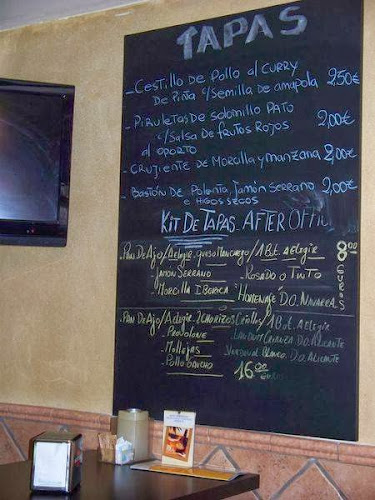 TAPAS
- Cestillo De Pollo al Curry
De Piña c/Semilla de amapola 2,50€
- Piruletas de solomillo Pato
c/Salsa de frutos Rojos 2,00€
al oporto
- Crujiente de Morcilla y manzana 2,00€
- Bastón de Polenta, Jamón Serrano 2,00€
e Higos secos
Kit De Tapas AFTER OFFI
- Pan De Ajo/A elegir: queso Manchego/1 Bot. a elegir 8,00
Jamón Serrano - Rosado o Tinto
Morcilla Iberica "Homenaje" D.O. Navarra
EUROS
- Pan De Ajo/A elegir: 2 Chorizos Criollos/1 Bot. A elegir
- Provolone Crianza D.O. Alicante
- Mollejas Blanco D.O. Alicante
- Pollo Gaucho 16,00
euros